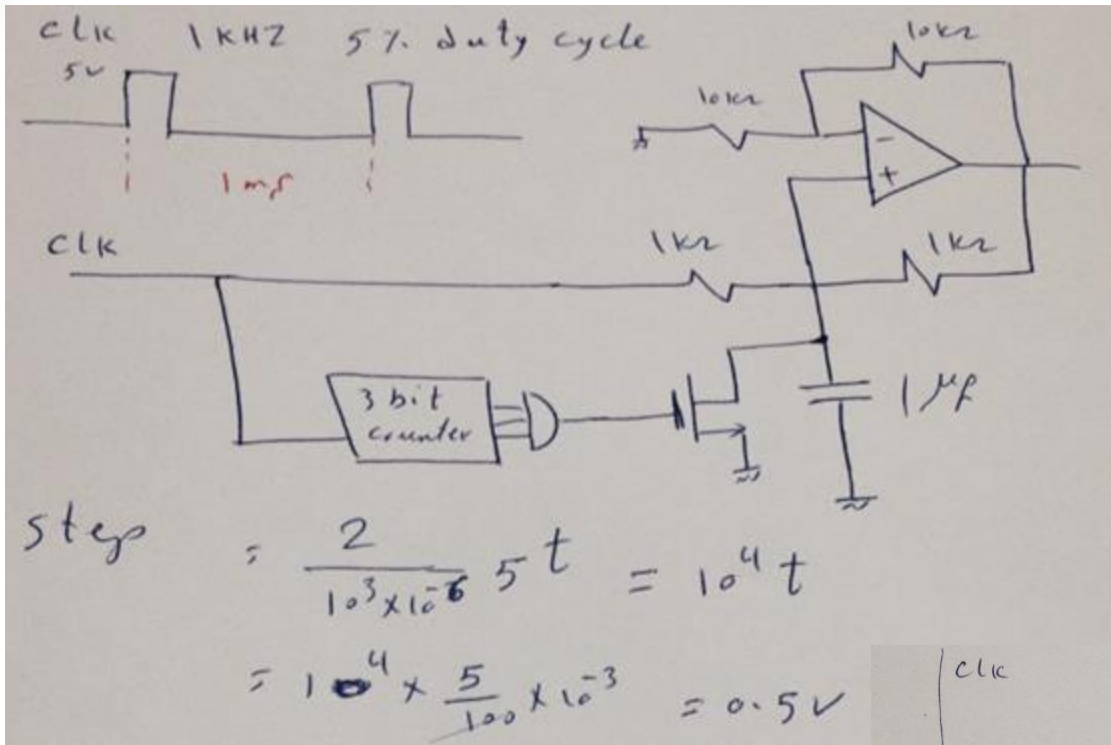 clk 1 KHZ 5% duty cycle
5v
1ms
10kΩ
10kΩ
-
+
clk
1kΩ
1kΩ
3 bit
counter
1 μf
step = 2 / 10³×10⁻⁶ 5 t = 10⁴ t
= 10⁴ × 5/100 × 10⁻³ = 0.5 v
clk